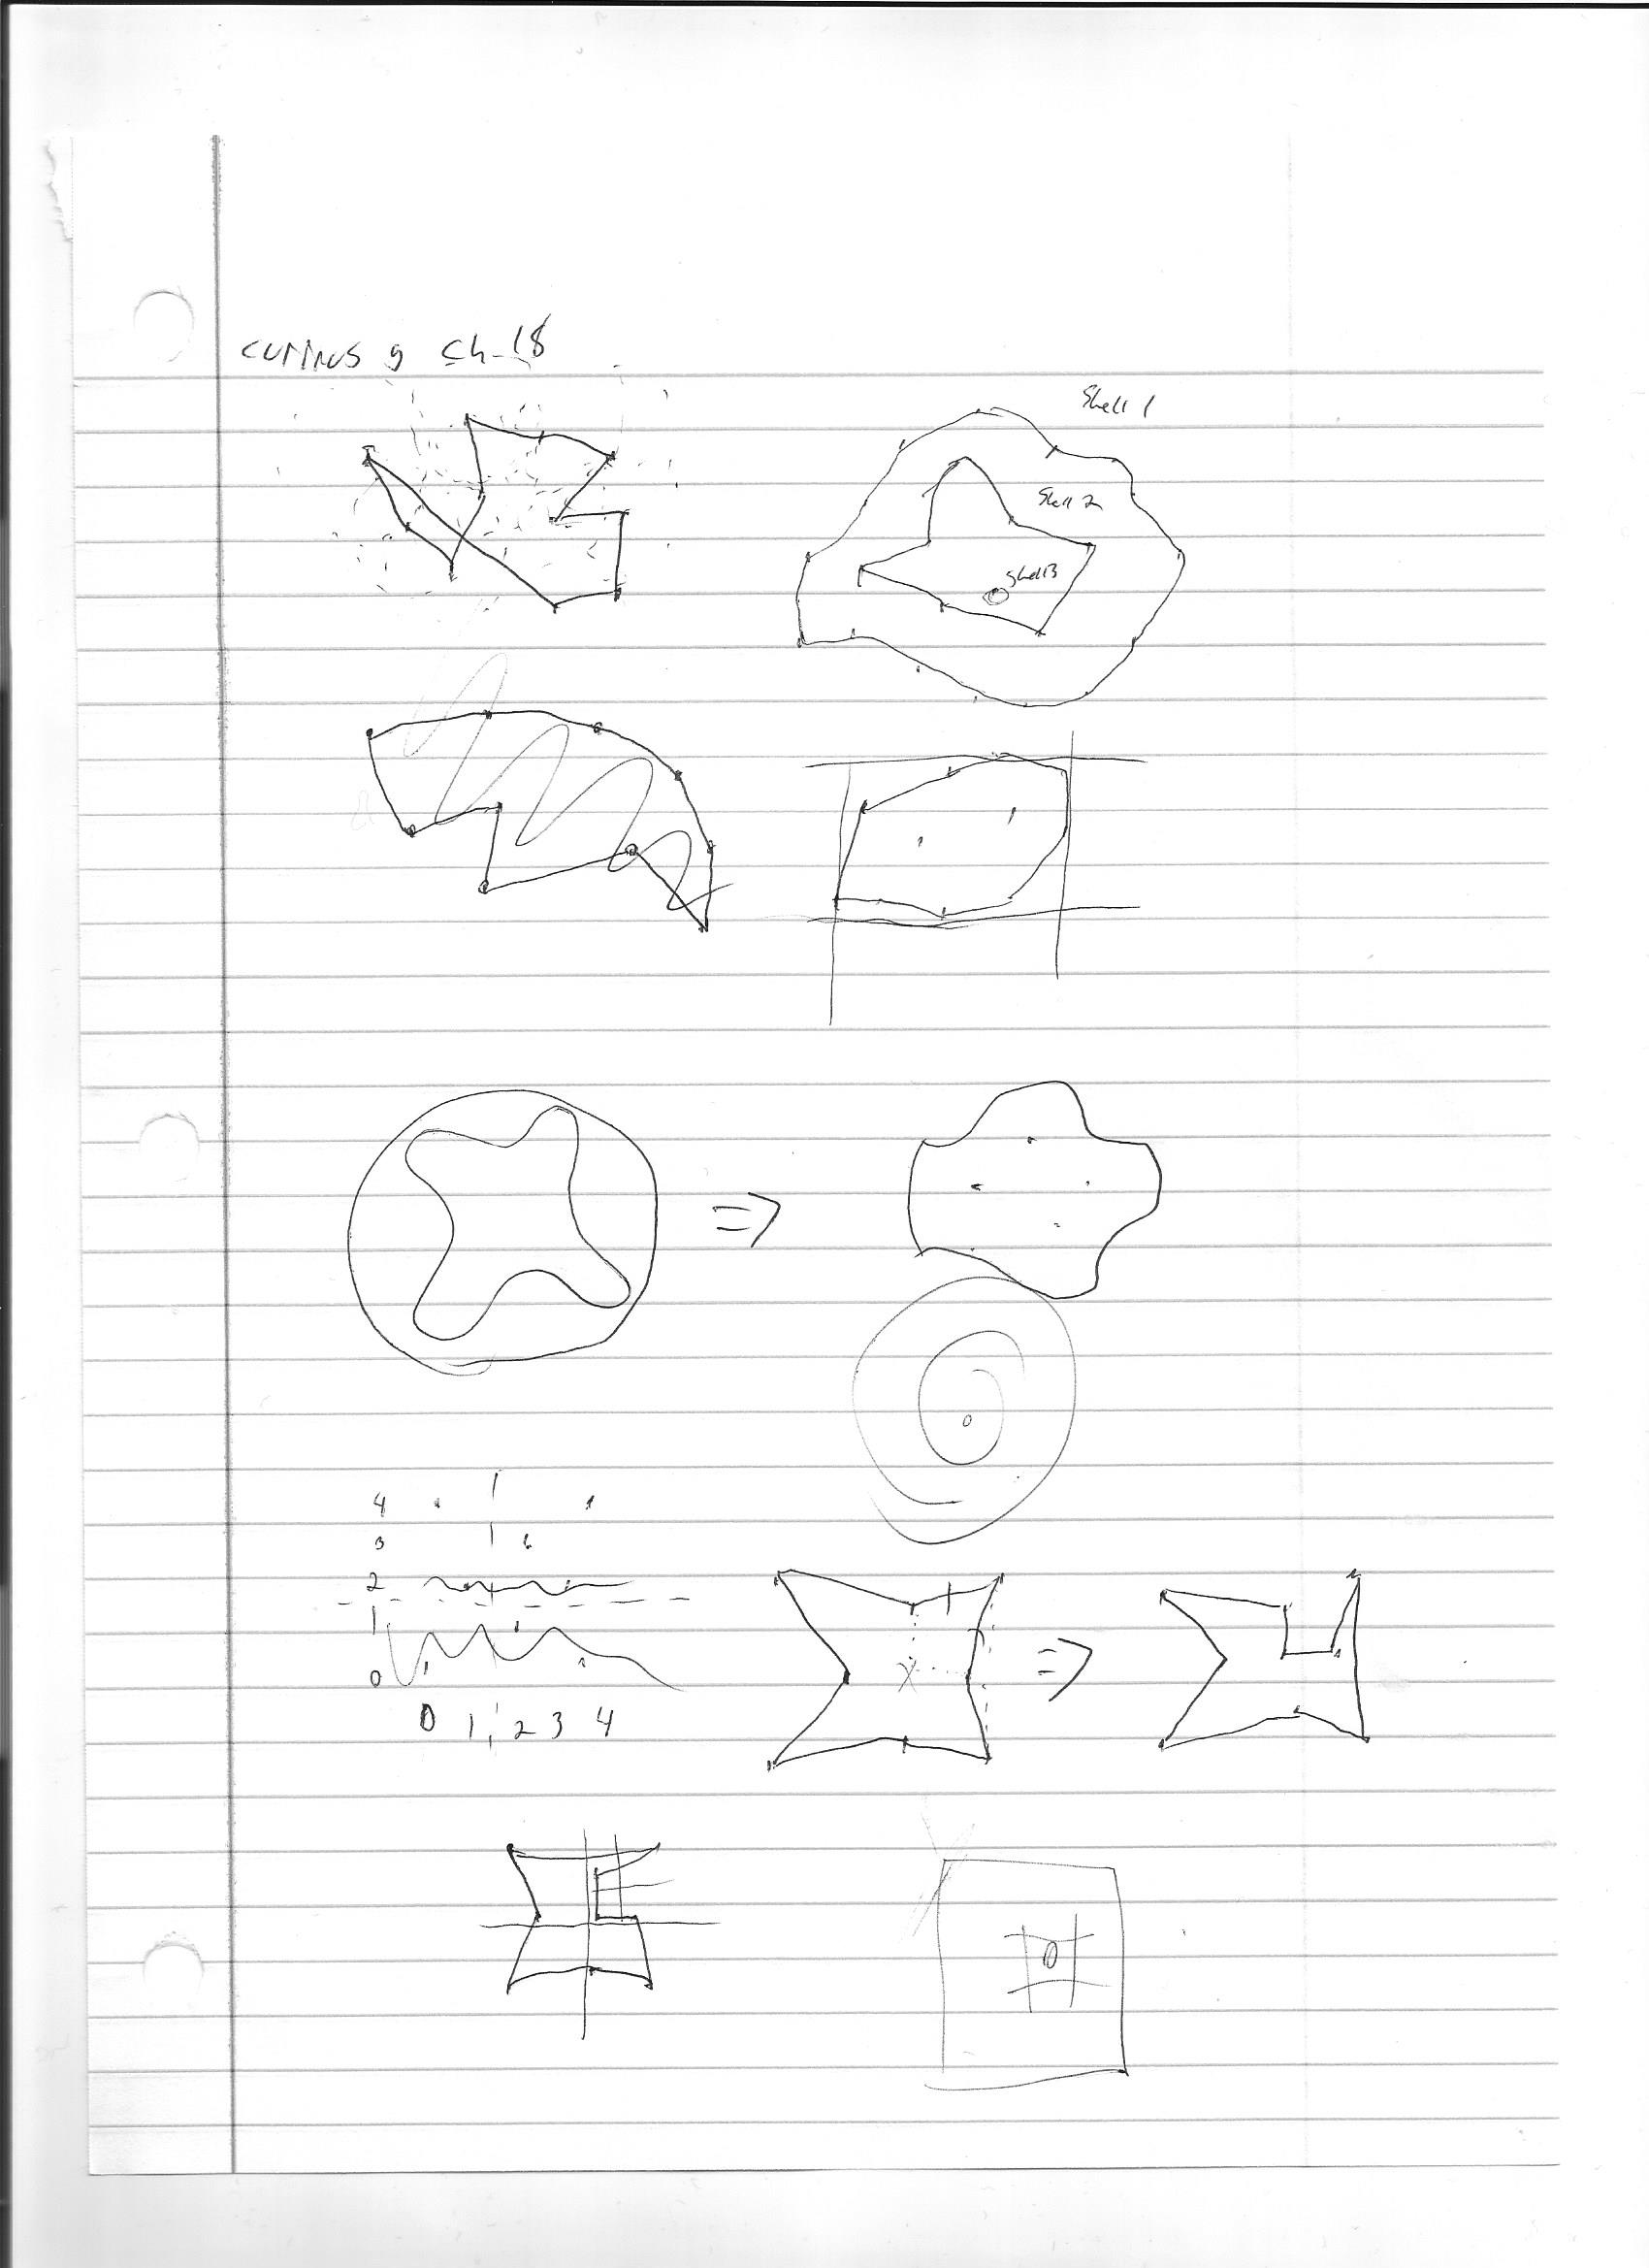 ch. 18
Shell 1
Shell 2
Shell 3
4
3
2
1
0
0 1 2 3 4